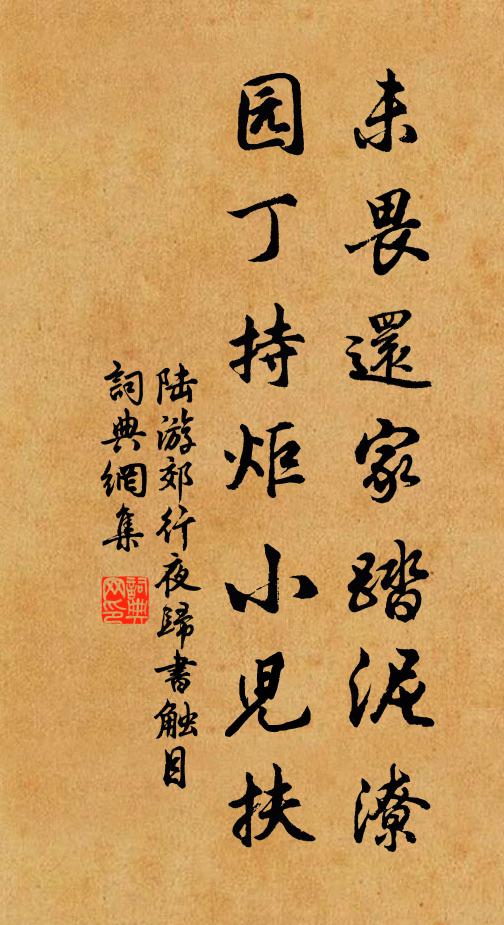 未畏還家踏泥潦
园丁持炬小児扶
陆游郊行夜歸書触目
詞典網集
詞典网印